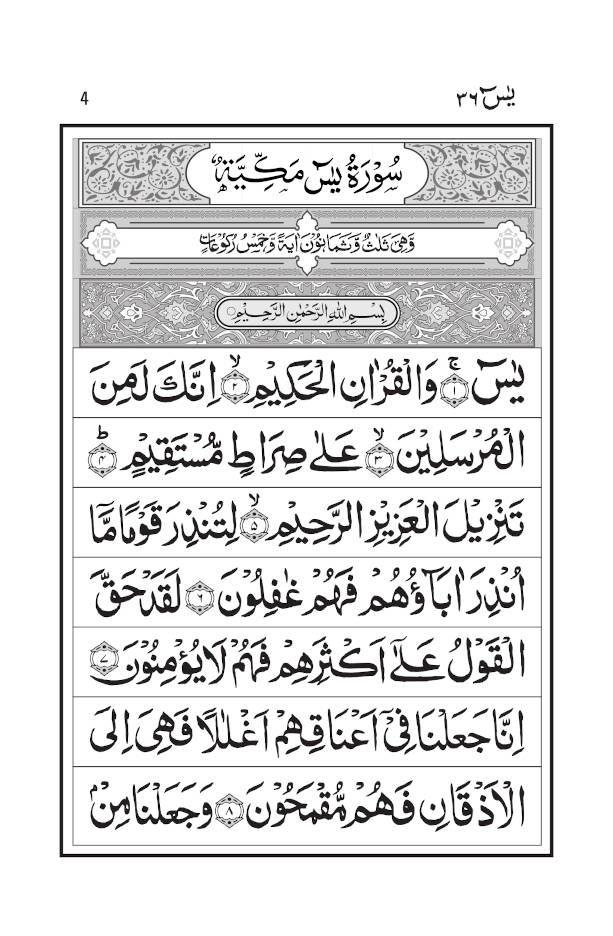 4
يٰسٓ ٣٦
سُوْرَةُ يٰسٓ مَكِّيَّةٌ
وَهِيَ ثَلٰثٌ وَّثَمَانُوْنَ اٰيَةً وَّخَمْسُ رُكُوْعَاتٍ
بِسْمِ اللّٰهِ الرَّحْمٰنِ الرَّحِيْمِ
يٰسٓ ۚ‏﴿۱﴾ وَالْقُرْاٰنِ الْحَكِيْمِ ۙ‏﴿۲﴾ اِنَّكَ لَمِنَ
الْمُرْسَلِيْنَ ۙ‏﴿۳﴾ عَلٰى صِرَاطٍ مُّسْتَقِيْمٍ ؕ‏﴿۴﴾
تَنْزِيْلَ الْعَزِيْزِ الرَّحِيْمِ ۙ‏﴿۵﴾ لِتُنْذِرَ قَوْمًا مَّاۤ
اُنْذِرَ اٰبَآؤُهُمْ فَهُمْ غٰفِلُوْنَ ﴿۶﴾ لَقَدْ حَقَّ
الْقَوْلُ عَلٰٓى اَكْثَرِهِمْ فَهُمْ لَا يُؤْمِنُوْنَ ﴿۷﴾
اِنَّا جَعَلْنَا فِيْۤ اَعْنَاقِهِمْ اَغْلٰلًا فَهِيَ اِلَى
الْاَذْقَانِ فَهُمْ مُّقْمَحُوْنَ ﴿۸﴾ وَجَعَلْنَا مِنْۢ